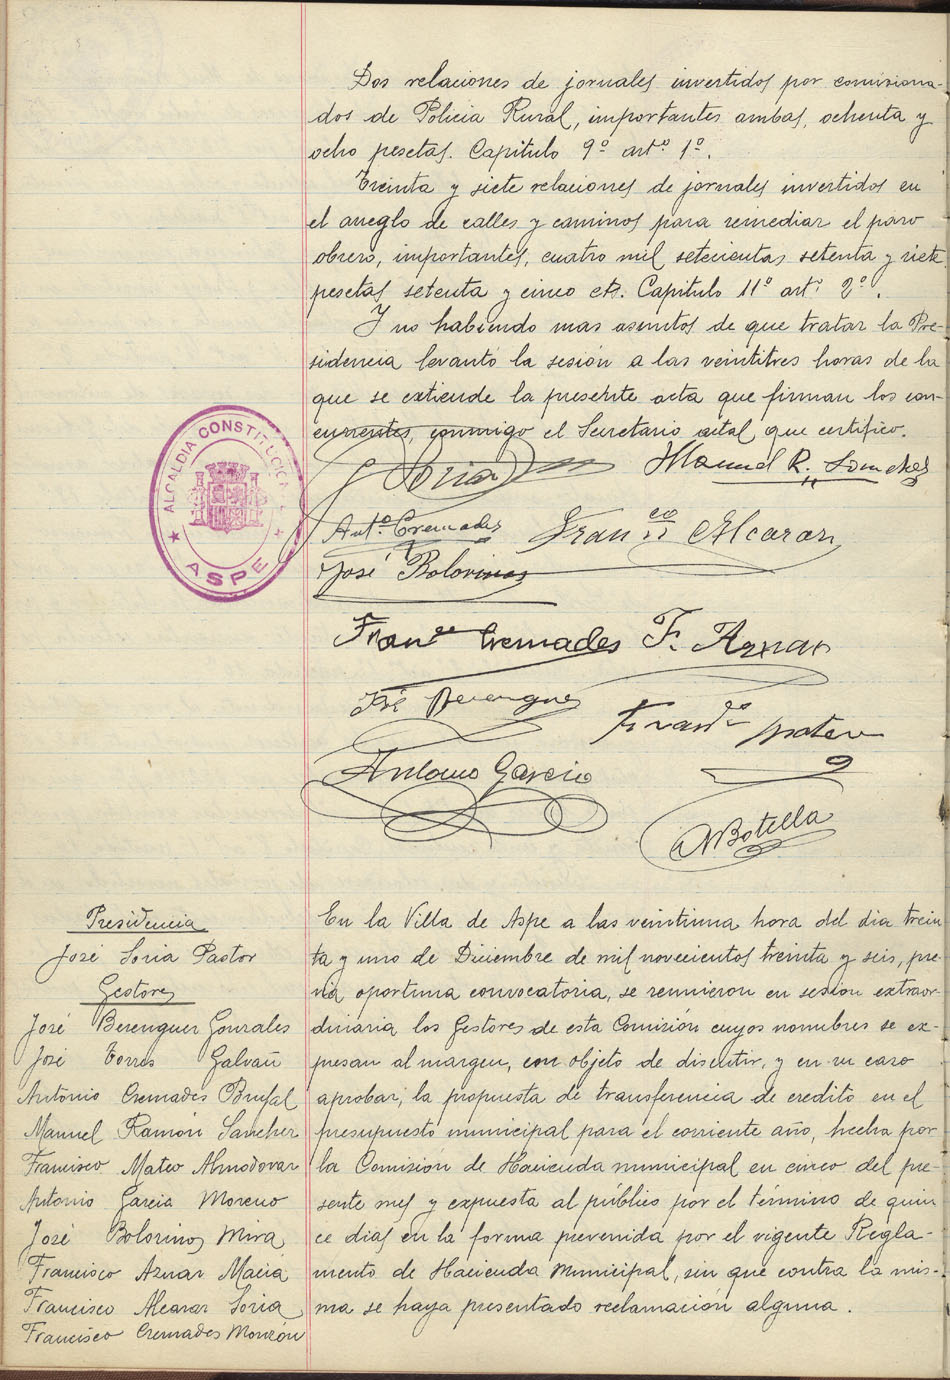 Dos relaciones de jornales invertidos por comisiona-
dos de Policia Rural, importantes ambas, ochenta y
ocho pesetas. Capitulo 9º artº 1º.
Treinta y siete relaciones de jornales invertidos en
el arreglo de calles y caminos para remediar el paro
obrero, importantes, cuatro mil setecientas setenta y siete
pesetas setenta y cinco cts. Capitulo 11º artº 2º.
Y no habiendo mas asuntos de que tratar la Pre-
sidencia levantó la sesión a las veintitres horas de la
que se extiende la presente acta que firman los con-
currentes, conmigo el Secretario actal que certifico.
ALCALDIA CONSTITUCIONAL
ASPE
J Soria
Manuel R. Sanchez
Antº Cremades
Franco Alcaraz
José Bolorinos
Franco Cremades
F. Aznar
José Berenguer
Franco Mateo
Antonio Garcia
A Botella
Presidencia
José Soria Pastor
Gestores
José Berenguer Gonzales
José Torres Galvañ
Antonio Cremades Brufal
Manuel Ramón Sanchez
Francisco Mateo Almodovar
Antonio Garcia Moreno
José Bolorinos Mira
Francisco Aznar Maciá
Francisco Alcaraz Soria
Francisco Cremades Monzón
En la Villa de Aspe a las veintinna hora del dia trein
ta y uno de Diciembre de mil novecientos treinta y seis, pre-
via oportuna convocatoria, se reunieron en sesion extraor-
dinaria los Gestores de esta Comisión cuyos nombres se ex-
presan al margen, con objeto de discutir, y en su caso
aprobar, la propuesta de transferencia de credito en el
presupuesto municipal para el corriente año, hecha por
la Comisión de Hacienda municipal en cinco del pre-
sente mes y expuesta al público por el término de quin
ce dias en la forma prevenida por el vigente Regla-
mento de Hacienda Municipal, sin que contra la mis-
ma se haya presentado reclamación alguna.